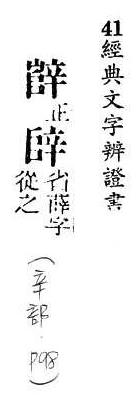 41 經典文字辨證書
辥 正
省薛字
從之
(辛部.P98)